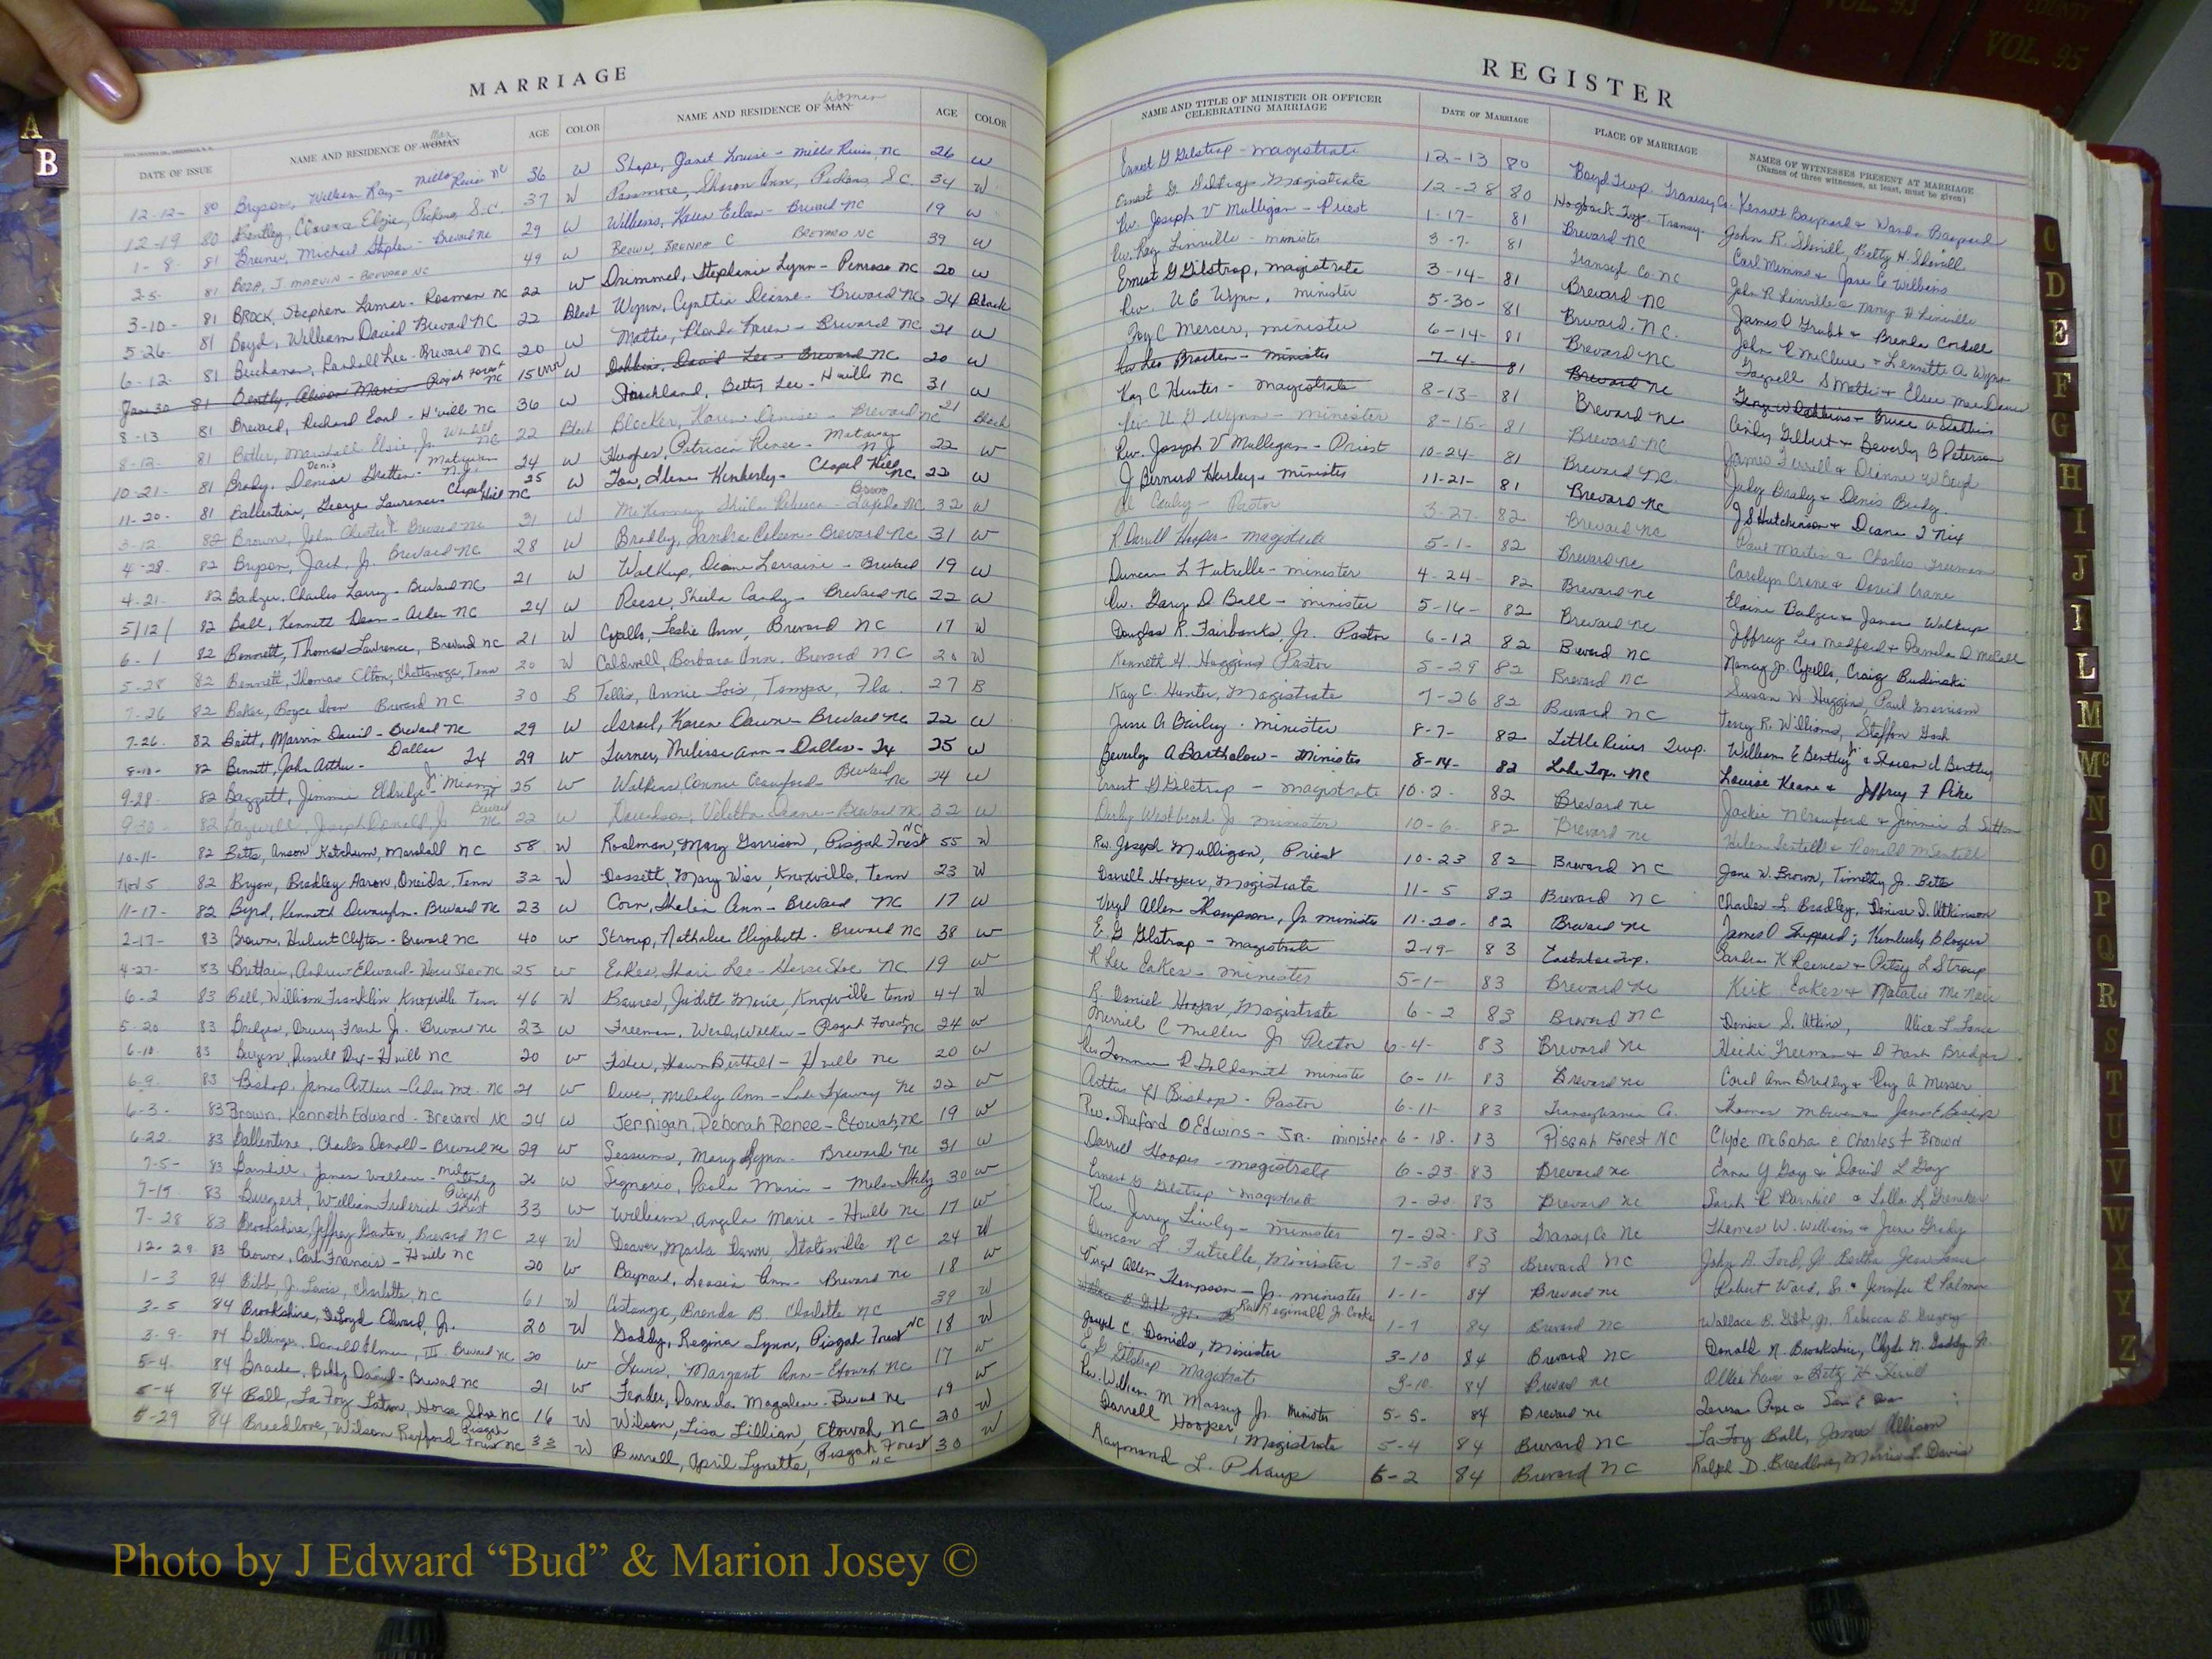 MARRIAGE
REGISTER
A
B
DATE OF ISSUE
NAME AND RESIDENCE OF WOMAN Man
AGE
COLOR
NAME AND RESIDENCE OF MAN Woman
AGE
COLOR
NAME AND TITLE OF MINISTER OR OFFICER CELEBRATING MARRIAGE
DATE OF MARRIAGE
PLACE OF MARRIAGE
NAMES OF WITNESSES PRESENT AT MARRIAGE
(Names of three witnesses, at least, must be given)
12-12- 80 Bryson, William Ray - Mills River NC 36 W Shope, Janet Louise - Mills River, NC 26 W Ernest G Gilstrap - magistrate 12-13 80 Boyd Twp. Transy Co. Kenneth Baynard & Wanda Baynard
12-19 80 Bentley, Clarence Elzie, Pickens, S.C. 37 W Passmore, Sharon Ann, Pickens S.C. 34 W Ernest G. Gilstrap Magistrate 12-28 80 Hogback Twp. Transy. John R. Sherrill, Betty H. Sherrill
1-8- 81 Bruner, Michael Stephen - Brevard NC 29 W Williams, Karen Eileen - Brevard NC 19 W Rev. Joseph V Mulligan - Priest 1-17- 81 Brevard NC Carl Mimms & Jane C Williams
3-5- 81 J. MARVIN - BREVARD NC 49 W BROWN, BRENDA C BREVARD NC 39 W Rev. Ray Linville - minister 3-7- 81 Transyl Co. NC John R Linville & Nancy H Linville
3-10- 81 BROCK, Stephen Lamar - Rosman NC 22 W Drimmel, Stephanie Lynn - Penrose NC 20 W Ernest G Gilstrap, magistrate 3-14- 81 Brevard NC James O Grubt & Brenda Cordell
5-26- 81 Boyd, William David Brevard NC 22 Black Wynn, Cynthia Deirne - Brevard NC 24 Black Rev. U G Wynn, minister 5-30- 81 Brevard. N.C. John R McClure & Lennette A Wynn
6-12- 81 Buchanan, Randall Lee - Brevard NC 20 W Karen - Brevard NC 21 W Foy C Mercer, minister 6-14- 81 Brevard NC
June 30 81 Bently, Alison Marie - Pisgah Forest NC 15 W Dobbins, David Lee - Brevard NC 20 W Leo Bracken - minister 7-4- 81 Brevard NC George W Dobbins & Grace A Dobbins
8-13 81 Brevard, Richard Earl - H'ville NC 36 W Strickland, Betty Lee - H'ville NC 31 W Kay C Hunter - magistrate 8-13- 81 Brevard NC Cindy Gilbert & Beverly B Peterson
8-12- 81 Butler, Marshall Elsie Jr. NC 22 Black Blocker, Karen Denise - Brevard NC 21 Black Rev. U G Wynn - minister 8-15- 81 Brevard NC James Ferrell & Dianne W Boyd
10-21- 81 Brady, Denis Gratten - Matawan N.J. 24 W Hughes, Patricia Renee - Matawan N.J. 22 W Rev. Joseph V Mulligan - Priest 10-24- 81 Brevard NC. Judy Brady & Denis Brady.
11-20- 81 Ballentine, George Laurence - Chapel Hill NC 25 W Fox, Ilene Kimberley - Chapel Hill NC 22 W J Bernard Hurley - minister 11-21- 81 Brevard NC J S Hutchinson & Diana I Nix
3-12 82 Brown, John Chester Brevard NC 31 W McKinney, Sheila Rebecca - NC 32 W Pastor 3-27- 82 Brevard NC Paul Martin & Charles Freeman
4-28- 82 Bryson, Jack, Jr. Brevard NC 28 W Bradley, Sandra Coleen - Brevard NC 31 W R Darrell Hooper - magistrate 5-1- 82 Brevard NC Carolyn Crane & David Crane
4-21- 82 Badger, Charles Larry - Brevard NC 21 W Walkup, Diane Lorraine - Brevard 19 W Duncan L Futrelle - minister 4-24- 82 Brevard NC Elaine Badger & James Walkup
5/12/ 82 Ball, Kenneth Dean - Arden NC 24 W Reese, Sheila Candy - Brevard NC 22 W Rev. Gary D Ball - minister 5-16- 82 Brevard NC Jeffrey Leo Medford & Pamela D McCall
6-1 82 Bennett, Thomas Lawrence, Brevard NC 21 W Cyalls, Leslie Ann, Brevard NC 17 W Douglas R. Fairbanks, Jr. Pastor 6-12 82 Brevard NC Nancy Jr. Cyalls, Craig Budinski
5-28 82 Bennett, Thomas Elton, Chattanooga, Tenn 20 W Caldwell, Barbara Ann, Brevard NC 20 W Kenneth H. Huggins Pastor 5-29 82 Brevard NC Susan W. Huggins, Paul Morrison
7-26 82 Baker, Boyce Ivan Brevard NC 30 B Tellis, Annie Lois, Tampa, Fla. 27 B Kay C. Hunter, Magistrate 7-26 82 Brevard NC Terry R. Williams, Steffon Gash
7-26. 82 Britt, Marvin David - Brevard NC 29 W Israel, Karen Dawn - Brevard NC 22 W Jesse A Bailey - minister 8-7- 82 Little River Twp. William E Bentley Jr & Sharon J Bentley
8-10- 82 Bennett, John Arthur - Dallas TX 29 W Turner, Melissa Ann - Dallas - TX 25 W Beverly A Bartholow - Minister 8-14- 82 Lake Top. NC Louise Keane & Jeffrey F Pike
9-28- 82 Baggett, Jimmie Eldridge Jr Miami 25 W Watkins, Connie Crawford - Brevard NC 24 W Ernest G Gilstrap - magistrate 10-2- 82 Brevard NC Jackie N Crawford & Jimmie L Sutton
9-30- 82 Joseph Donald Jr Brevard NC 22 W Davidson, Veletta Deane - Brevard NC 32 W Derby Westbrook Jr minister 10-6- 82 Brevard NC Helen Sentell & Ronald M Sentell
10-11- 82 Betts, Anson Ketchum, Marshall NC 58 W Rodman, Mary Garrison, Pisgah Forest NC 55 W Rev. Joseph Mulligan, Priest 10-23 82 Brevard NC Jane W. Brown, Timothy J. Betts
Nov 5 82 Bryan, Bradley Aaron, Oneida Tenn 32 W Dossett, Mary Wier, Knoxville, Tenn 23 W Darrell Hooper, Magistrate 11-5 82 Brevard NC Charles L Bradley, Denise S. Atkinson
11-17- 82 Byrd, Kenneth Devaughn - Brevard NC 23 W Corn, Shelia Ann - Brevard NC 17 W Virgil Allen Thompson, Jr. minister 11-20- 82 Brevard NC James O Sheppard; Kimberly B Logan
2-17- 83 Brown, Hubert Clifton - Brevard NC 40 W Stroup, Nathalie Elizabeth - Brevard NC 38 W E G Gilstrap - magistrate 2-19- 83 Eastatoe Twp. Carlen K Reeves & Patsy L Stroup
4-27- 83 Brittain, Andrew Edward - Horse Shoe NC 25 W Eakes, Shari Lee - Horse Shoe NC 19 W R Lee Eakes - minister 5-1- 83 Brevard NC Kirk Eakes & Natalie McNair
6-2 83 Bell, William Franklin Knoxville Tenn 46 W Judith Marie, Knoxville Tenn 44 W R. Daniel Hooper, Magistrate 6-2 83 Brevard NC Denise S. Atkins, Alice L Lance
5-20 83 Bridges, Drury Frank Jr. Brevard NC 23 W Freeman, Wendy Walker - Pisgah Forest NC 24 W Merrill C Miller Jr Rector 6-4- 83 Brevard NC Heidi Freeman & D Frank Bridges
6-10. 83 Burgess, Russell Dey - H'ville NC 20 W Fisher, Dawn Birthell - H'ville NC 20 W Rev Tommie R Goldsmith minister 6-11- 83 Brevard NC Carol Ann Bradley & Ray A Messer
6-9. 83 Bishop, James Arthur - Cedar Mt. NC 21 W Owen, Melody Ann - Lake Toxaway NC 22 W Arthur H Bishop - Pastor 6-11- 83 Transylvania Co. Thomas M Owen & James E Bishop
6-3- 83 Brown, Kenneth Edward - Brevard NC 24 W Jernigan, Deborah Renee - Etowah, NC 19 W Rev. Shuford O Edwins - Jr. minister 6-18- 83 Pisgah Forest NC Clyde McGaha & Charles F Brown
6-22. 83 Ballentine, Charles Donald - Brevard NC 29 W Sessums, Mary Lynn - Brevard NC 31 W Darrell Hooper - magistrate 6-23- 83 Brevard NC Enna Y Gay & David L Gay
7-5- 83 Barnhill, James Wallace - Milan Italy 26 W Signorio, Paola Maria - Milan Italy 30 W Ernest G Gilstrap magistrate 7-20- 83 Brevard NC Sarah R Barnhill &
7-15 83 Burgert, William Frederick Pisgah Forest 33 W Williams, Angela Marie - H'ville NC 17 W Rev. Jerry - minister 7-22- 83 Transy Co NC Thomas W. Williams & June Grady
7-28 83 Brookshire, Jeffrey Gaston, Brevard NC 24 W Deaver, Marla Dawn, Statesville NC 24 W Duncan L. Futrelle, Minister 7-30 83 Brevard NC John A. Ford, Jr. Bertha Jean Lance
12-29 83 Brown, Carl Francis - H'ville NC 20 W Baynard, Ann - Brevard NC 18 W Virgil Allen Thompson - Jr. minister 1-1- 84 Brevard NC Robert Ward, Sr. & Jennifer R Palmer
1-3 84 Bibb, J. Lewis, Charlotte, NC 61 W Brenda B. Charlotte NC 39 W Rev Reginald Jr. Cooke 1-7 84 Brevard NC Wallace B. Gibbs, Jr. Rebecca B. Gregory
3-5 84 Brookshire, DeLoyd Edward, Jr. 20 W Gaddy, Regina Lynn, Pisgah Forest NC 18 W Joseph C. Daniels, Minister 3-10 84 Brevard NC Donald N. Brookshire, Clyde N. Gaddy Jr.
3-9- 84 Ballinger, Donald Elmer, III - Brevard NC 20 W Lewis, Margaret Ann - Etowah NC 17 W E G Gilstrap Magistrate 3-10- 84 Brevard NC Allen Lewis & Betty H Sherrill
5-4- 84 Bracken, Bobby David - Brevard NC 21 W Fender, Daneida Magalene - Brevard NC 19 W Rev. William M Massey Jr. minister 5-5- 84 Brevard NC Teresa Pope &
5-4 84 Ball, LaFoy Eaton, Horse Shoe NC 16 W Wilson, Lisa Lillian, Etowah, NC 20 W Darrell Hooper, Magistrate 5-4 84 Brevard NC LaFoy Ball, James Allison
5-29 84 Breedlove, Wilson Rexford Pisgah Forest NC 33 W Burrell, April Lynette, Pisgah Forest NC 30 W Raymond L. Phaup 6-2 84 Brevard NC Ralph D. Breedlove, Morris L. Davis
C
D
E
F
G
H
I
J
L
M
Mc
N
O
P
Q
R
S
T
U
V
W
X
Y
Z
COUNTY
VOL. 93
VOL. 95
Photo by J Edward “Bud” & Marion Josey ©